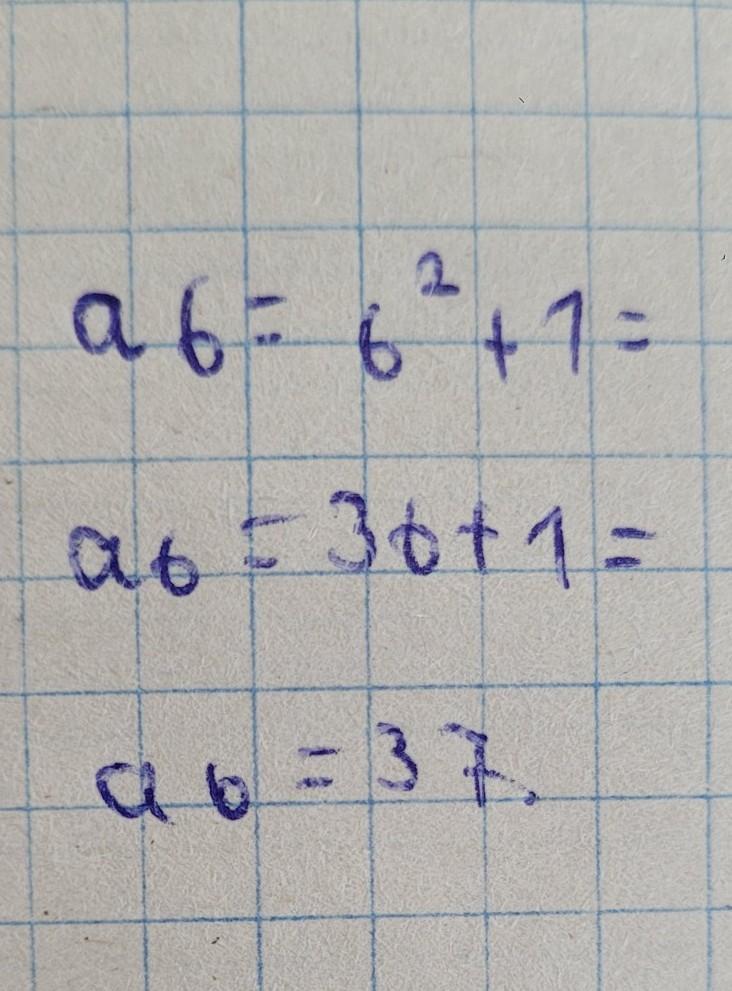 a6 = 6² + 1 =
a6 = 36 + 1 =
a6 = 37.